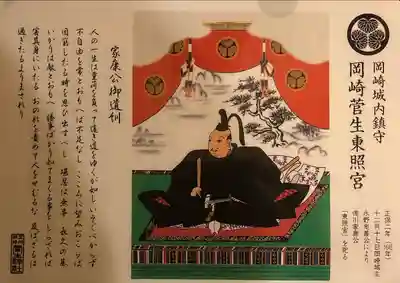 岡崎城内鎮守
岡崎菅生東照宮
正保二年
十二月十七日岡崎城主
水野忠善公により
徳川家康公
「東照宮」を祀る
家康公御遺訓
人の一生は重荷を負って遠き道をゆくが如し いそぐべからず
不自由を常とおもへば不足なし こころに望みおこらば
困窮したる時を思ひ出すべし 堪忍は無事 長久の基
いかりは敵とおもへ 勝事ばかり知てまくる事をしらざれば
害其身にいたる おのれを責めて人をせむるな 及ばざるは
過ぎたるよりまされり